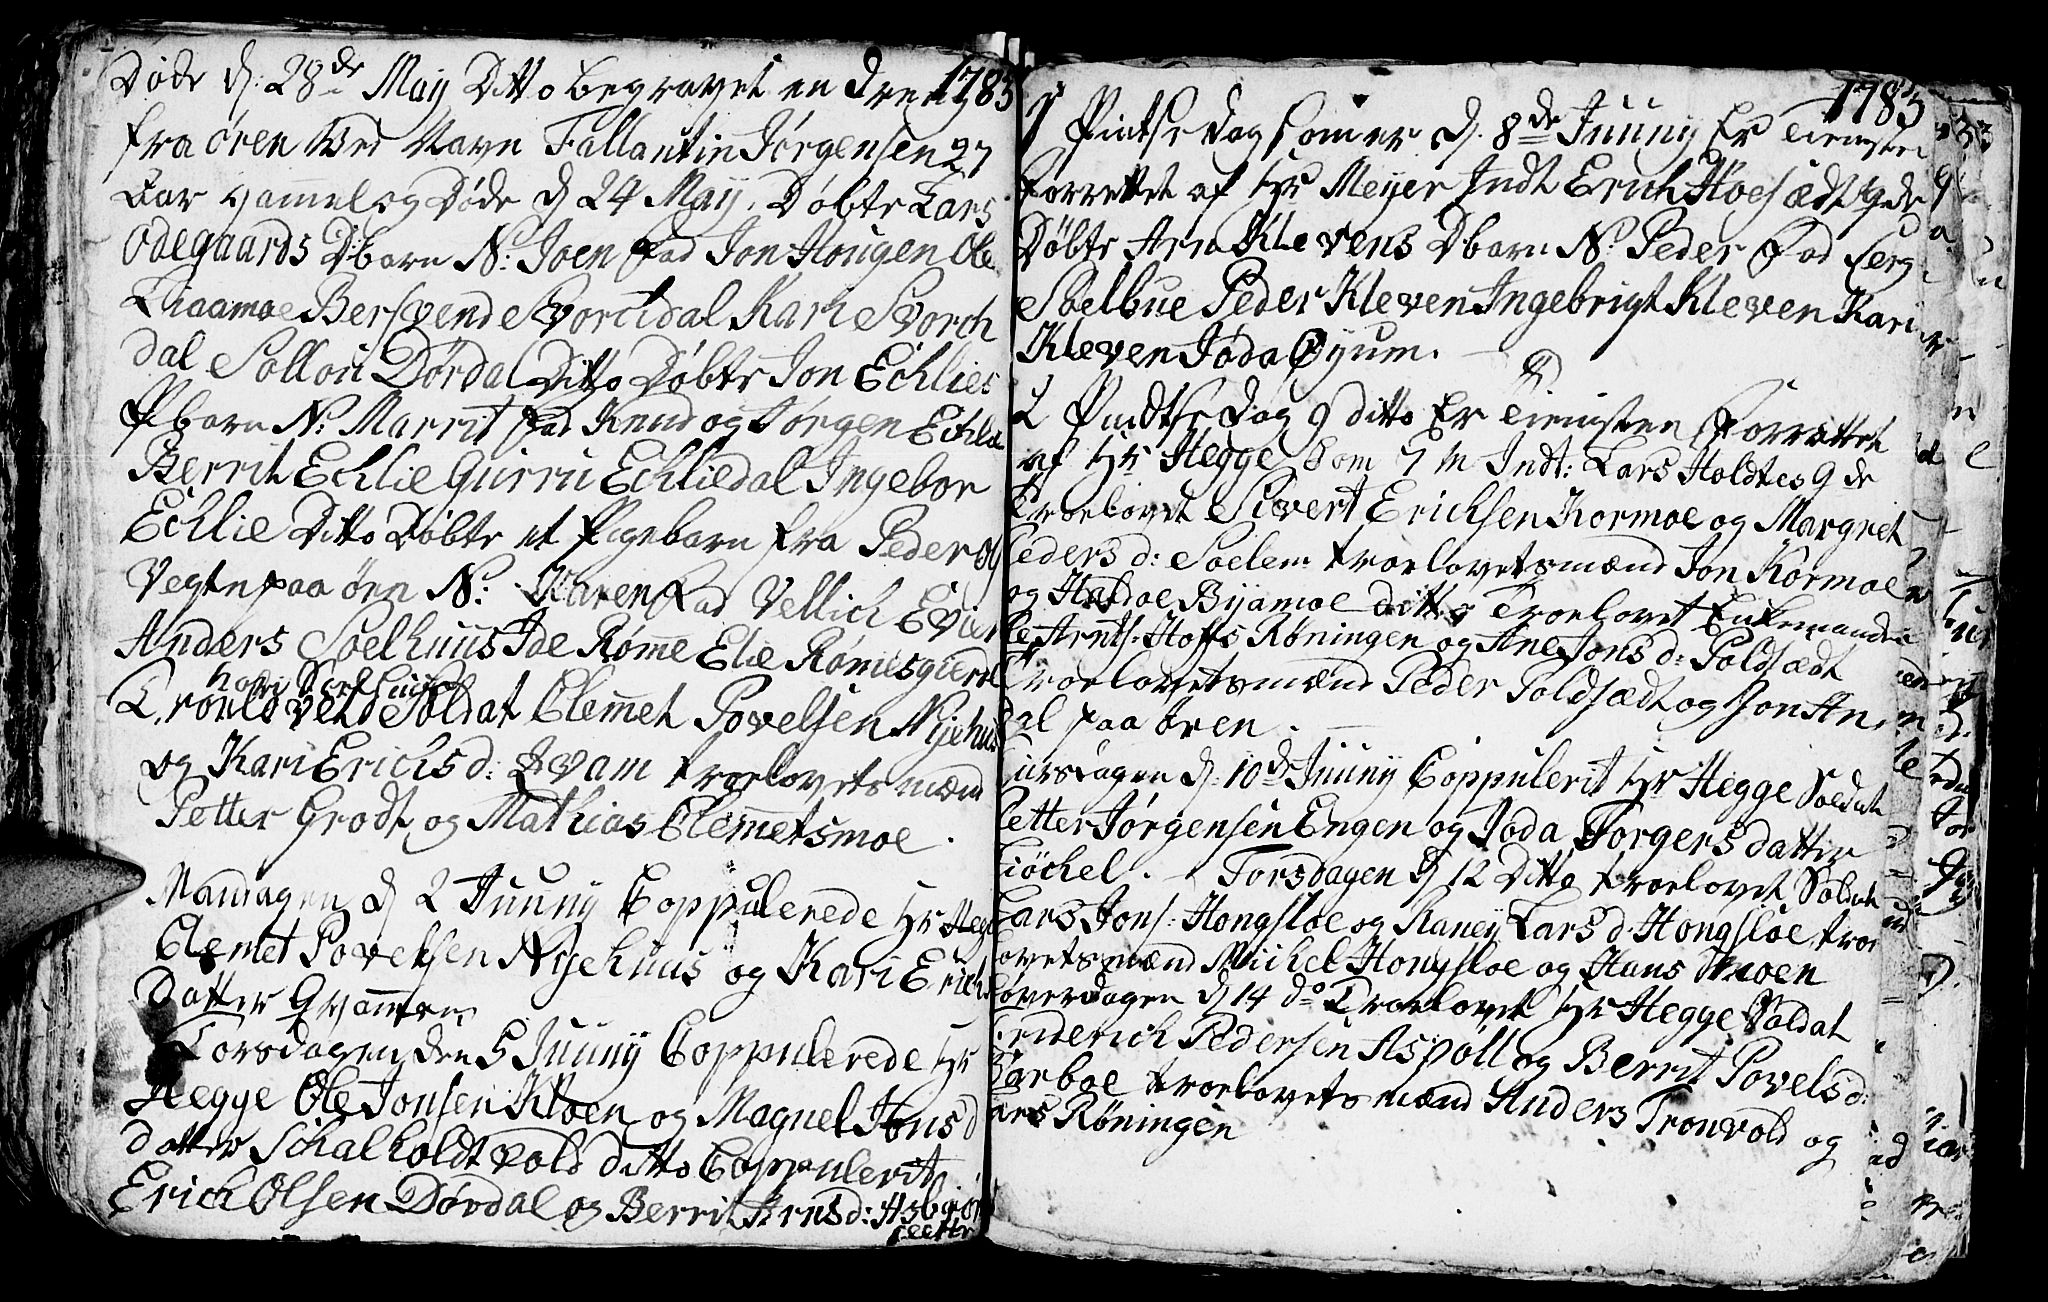 1783
Døde d: 28de Maij Ditto begravet en Dreng
fra ören Ved Navn Fallantin Jørgensen 27
Aar gammel og Døde d 24 Maij. Døbte Lars
Ødegaards Dbarn N: Joen Fad Jon Hougen Ole
Bersvend Svorchdal Kari Svorch
dal Dørdal Ditto Døbte Jon Echlies
Pbarn N: Marrit Fad Knud og Jørgen Echlie
Berrit Echlie Gurru Echliedal Ingebor
Echlie Ditto Døbte et Pigebarn fra Peder
Vegtn paa örn N: Karen Fad Vellich
Anders Soelhuus Joe Røme Elie Rømesgierde
Soelhuus
Troelovede Soldat Clemet Povelsen Nyehuus
og Kari Erichsd: Qvam troelovetsmænd
Petter Grodt og Mathias Clemetsmoe.
Mandagen d 2 Juuny Coppulerede Hr Hegge
Clemet Povelsen Nyehuus og Kari Erichs
Datter Qvammen
Torsdagen den 5 Juuny Coppulerede Hr
Hegge Ole Jonsen Kloen og Magnel Jonsd
datter Schalholdtvold ditto Coppulerit
Erich Olsen Dørdal og Berrit Arnsd: Asbiørn
seetr
1783
1 Pintse Dag som er d. 8de Juuny Er Tienesten
forrettet af Hr Meyer Indt Erich Hoesædt 9de
Døbte Arn Klevens Dbarn N: Peder Fad Serg:
Soelbue Peder Kleven Ingebrigt Kleven Kari
Kleven Joda Øyum.
2 Pindtse Dag 9 ditto Er Tienesten Forrettet
af Hr Hegge Som 7 Indt: Lars Holdtes 9de
Troelovet Sivert Erichsen Kormoe og Margret
Peders d: Soelem troelovetsmænd Jon Kormoe
og Haldoe Byamoe ditto Troelovet Enkemanden
Ole Arnts: Hoffs Røningen og Ane Jons d: Poldsædt
Troelovetsmænd Peder Poldsædt og Jon An
dal paa ören.
Tiirsdagen d. 10de Juuny Coppulerit Hr Hegge Soldat
Petter Jørgensen Engen og Joda Torgersdatter
Torsdagen d 12 Ditto troelovet Soldat
Lars Jons: Hongsloe og Raney Lars d: Hongsloe troe
lovetsmænd Michel Hongsloe og Hans Moen
Løverdagen d 14 do Troelovet Hr Hegge Soldat
Friderich Pedersen Aspøll og Berrit Povels d:
Garboe troelovetsmænd Anders Tronvold og
Lars Røningen